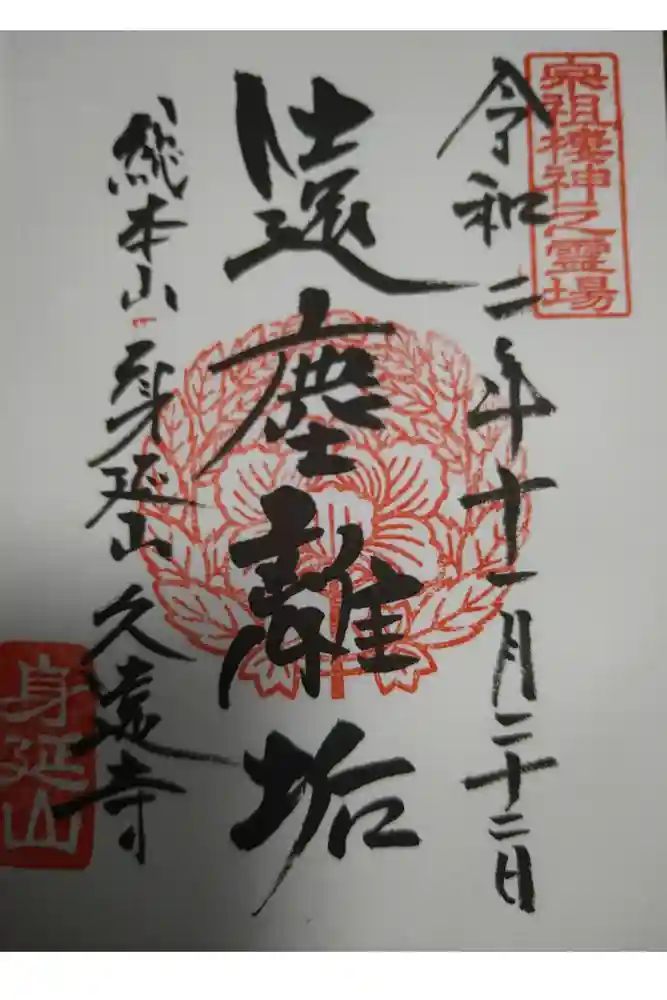 宗祖棲神之霊場
令和二年十一月二十二日
遠塵離垢
総本山 身延山 久遠寺
身延山